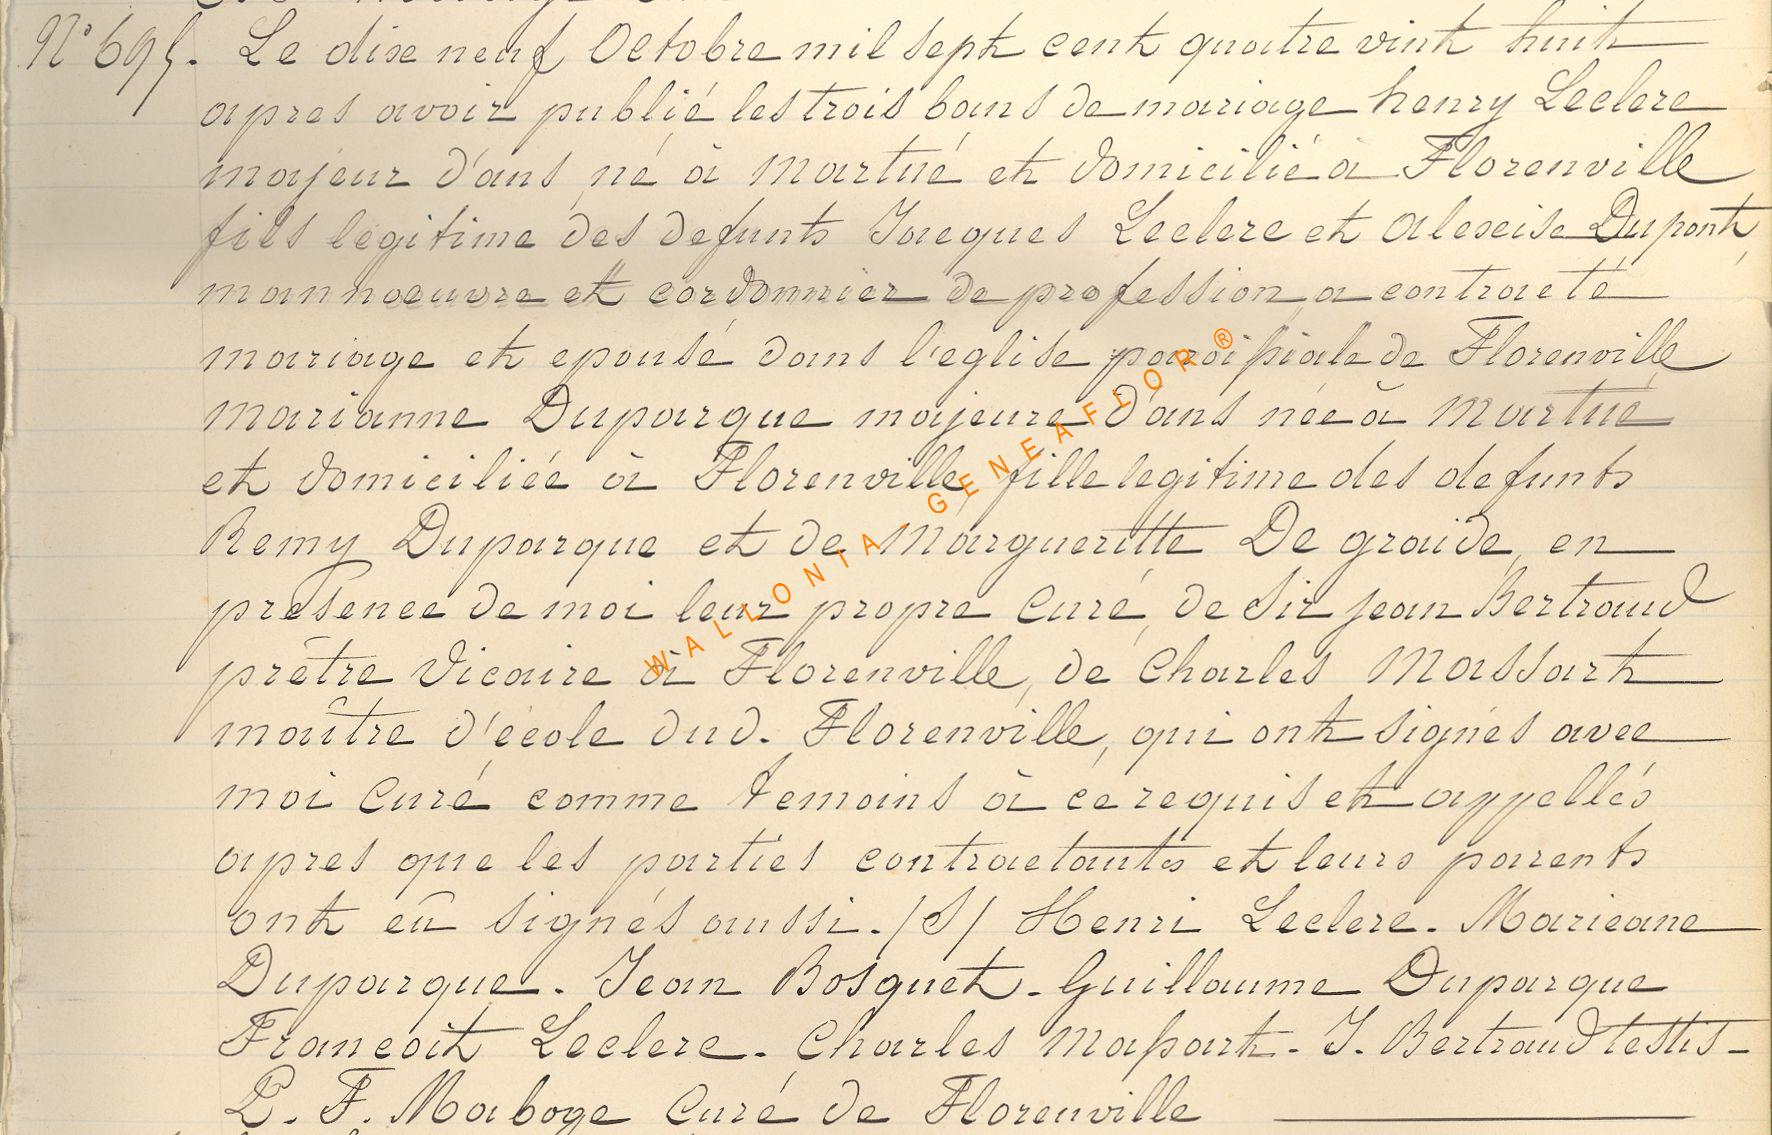 N° 695. Le dixe neuf Octobre mil sept cent quatre vint huit
apres avoir publié les trois bans de mariage henry Leclere
majeur d'ans né à Martué et domicilié à Florenville
fils legitime des defunts Jacques Leclere et Alexise Dupont,
mannoeuvre et cordonnier de profession, a contracté
mariage et epousé dans l'eglise paroissiale de Florenville
Marianne Duparque majeure d'ans née à Martué
et domiciliée à Florenville, fille legitime des defunts
Remy Duparque et de Margueritte De graide, en
presence de moi leur propre Curé, de Sir jean Bertrand
prêtre Vicaire à Florenville, de Charles Massart
maître d'école dud. Florenville, qui ont signés avec
moi Curé comme temoins à ce requis et appellés
apres que les parties contractants et leurs parents
ont eû signés aussi. /S/ Henri Leclere. Marieane
Duparque. Jean Bosquet. Guillaume Duparque
Francoit Leclere. Charles Massart. J. Bertrand testis -
P. F. Maboge Curé de Florenville
WALLONIA GENEAFLOR ®